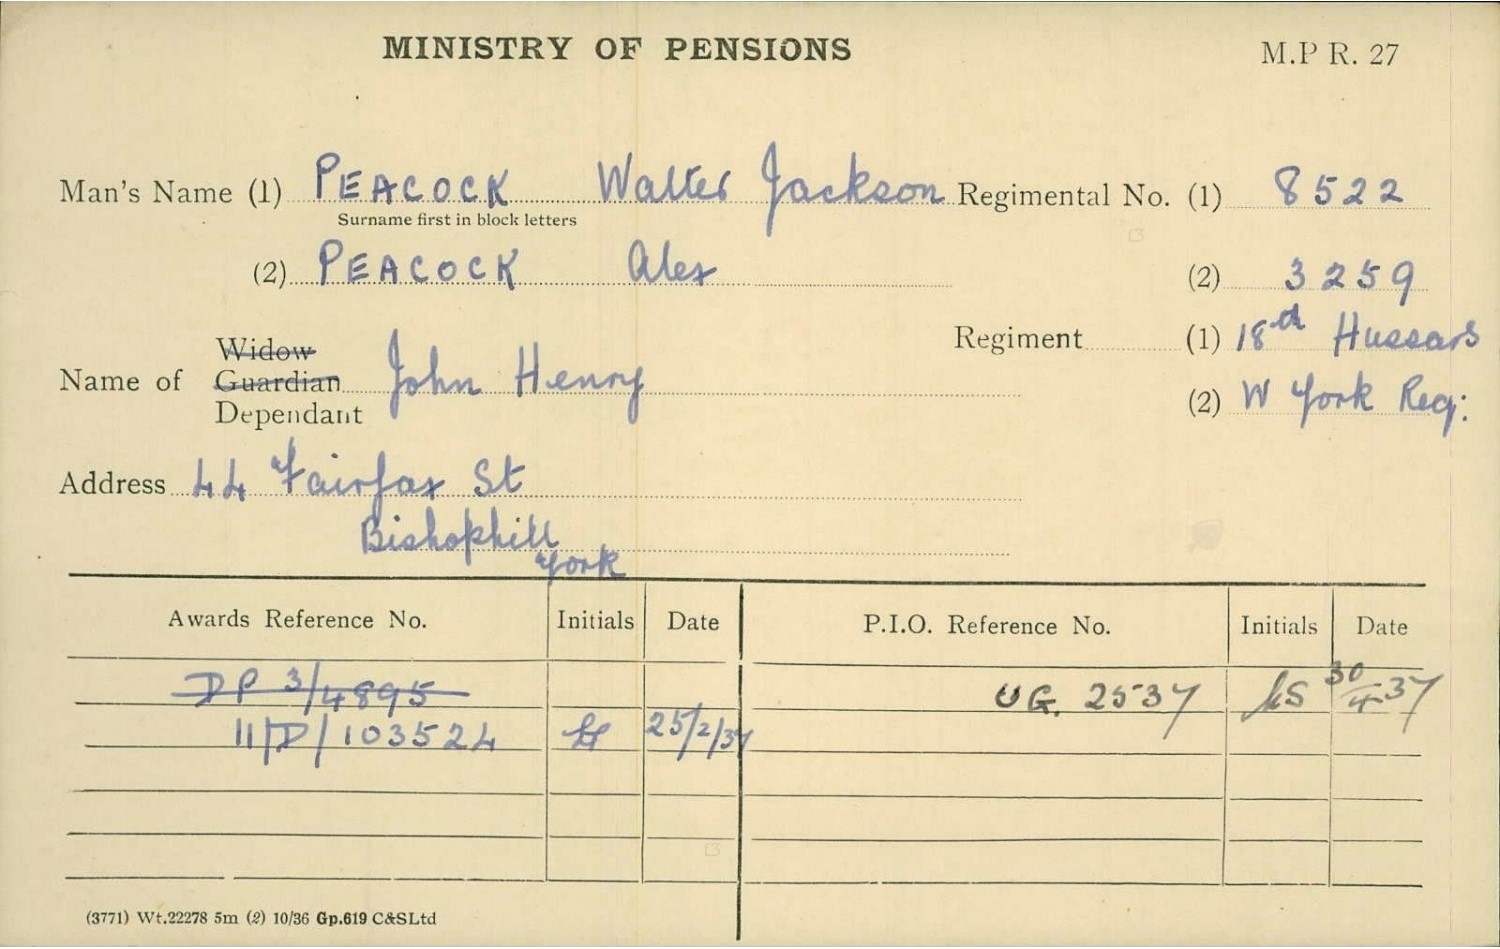 MINISTRY OF PENSIONS M.P R. 27
Man's Name (1) PEACOCK Walter Jackson Regimental No. (1) 8522
Surname first in block letters
(2) PEACOCK Alex (2) 3259
Regiment (1) 18th Hussars
Widow
Name of Guardian John Henry
Dependant
(2) W York Reg:
Address 44 Fairfax St
Bishophill
York
Awards Reference No. Initials Date P.I.O. Reference No. Initials Date
DP 3/4895 UG. 2537 30/4 37
11/D/103524 25/2/37
(3771) Wt.22278 5m (2) 10/36 Gp.619 C&S Ltd